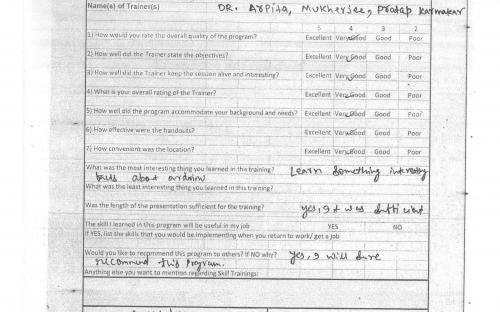 Name(s) of Trainer(s) DR. Arpita, Mukherjee, Pratap Karmakar
5 4 3 2
1) How would you rate the overall quality of the program? Excellent Very Good Good Poor
2) How well did the Trainer state the objectives? Excellent Very Good Good Poor
3) How well did the Trainer keep the session alive and interesting? Excellent Very Good Good Poor
4) What is your overall rating of the Trainer? Excellent Very Good Good Poor
5) How well did the program accommodate your background and needs? Excellent Very Good Good Poor
6) How effective were the handouts? Excellent Very Good Good Poor
7) How convenient was the location? Excellent Very Good Good Poor
What was the most interesting thing you learned in this training? Learn Something
about
What was the least interesting thing you learned in this training?
Was the length of the presentation sufficient for the training? yes, it was sufficient
The skill I learned in this program will be useful in my job YES NO
If YES, list the skills that you would be implementing when you return to work/ get a job
Would you like to recommend this program to others? If NO why? yes, I will sure
recommend this program.
Anything else you want to mention regarding Skill Trainings: